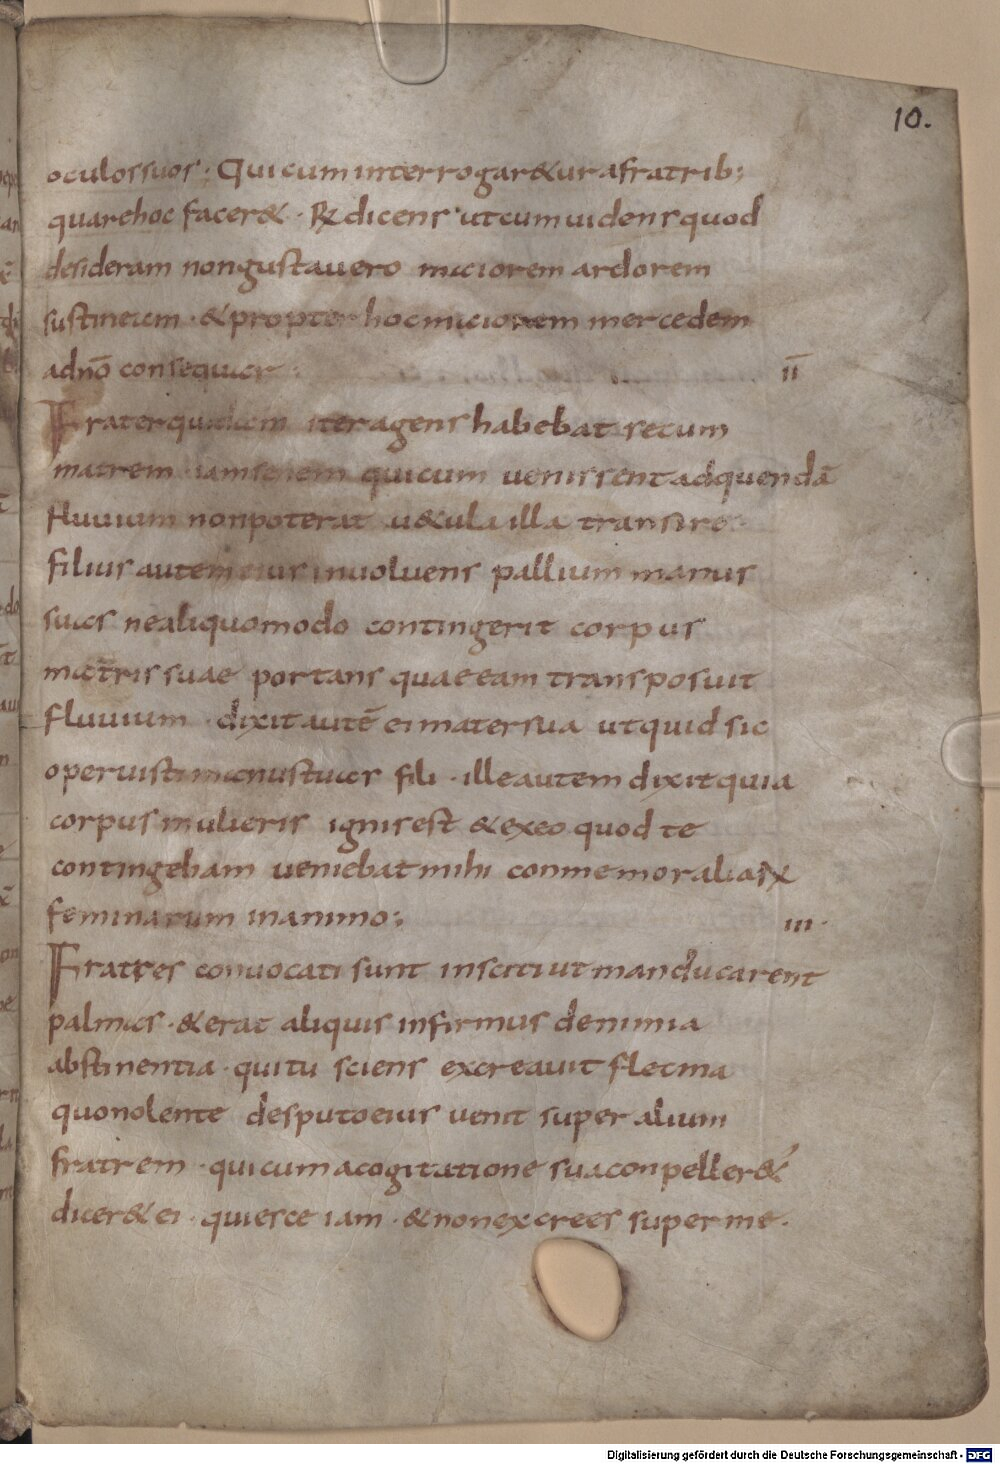 10.
oculos suos · Qui cum interrogar&ur a fratrib;
quare hoc facer& · R dicens ut cum uidens quod
desideram non gustauero maiorem ardorem
sustineam · & propter hoc maiorem mercedem
a dnō consequar :
II
Frater quidam iter agens habebat secum
matrem iam senem qui cum uenissent ad quendā
fluuium non poterat u&ula illa transire
filius autem eius inuoluens pallium manus
suas ne aliquomodo contingerit corpus
matris suae portans quae eam transposuit
fluuium · dixit autē ei mater sua ut quid sic
operuisti manus tuas fili · ille autem dixit quia
corpus mulieris ignis est & ex eo quod te
contingebam ueniebat mihi conmemoratio
feminarum in animo :
III ·
Fratres conuocati sunt in sciti ut manducarent
palmas · & erat aliquis infirmus de nimia
abstinentia · qui tu sciens excreauit flecma
quo nolente de sputo eius uenit super alium
fratrem · qui cum a cogitatione sua conpeller&
dicer& ei · quiesce iam · & non excrees super me ·
Digitalisierung gefördert durch die Deutsche Forschungsgemeinschaft - DFG